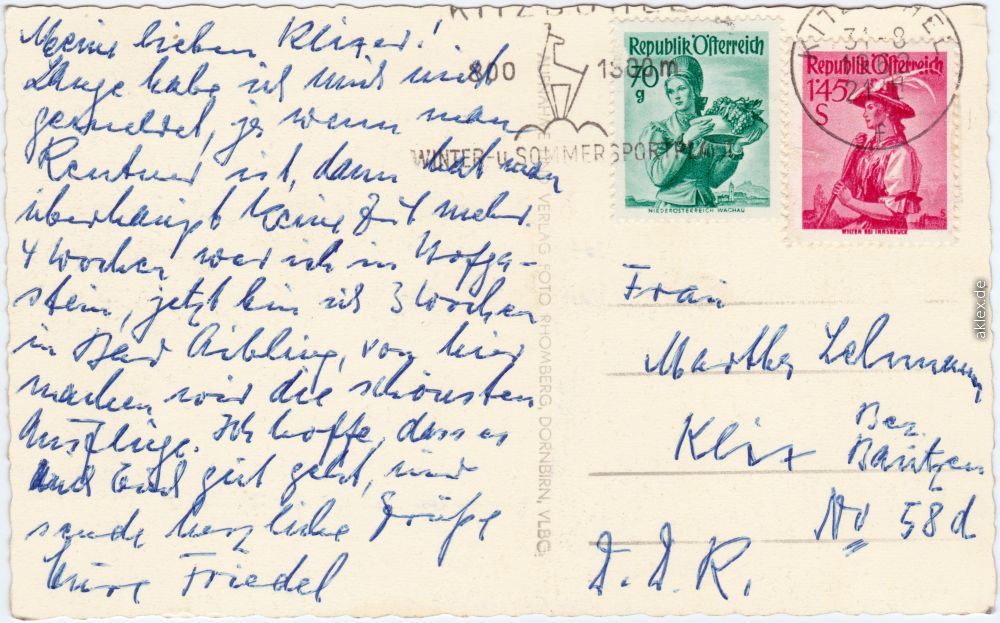 Meine lieben Klixer!
Lange habe ich mich nicht
gemeldet, ja wenn man
Rentner ist, dann hat man
überhaupt keine Zeit mehr.
4 Wochen war ich in Hofga-
stein, jetzt bin ich 3 Wochen
in Bad Aibling, von hier
machen wir die schönsten
Ausflüge. Ich hoffe, dass es
Euch gut geht, und
sende herzliche Grüße
Eure Friedel
KITZBÜHEL
800 1300m
WINTER-u. SOMMERSPORTPLATZ
VERLAG FOTO RHOMBERG, DORNBIRN, VLBG.
Republik Österreich
70
g
NIEDERÖSTERREICH WACHAU
Republik Österreich
1.45
S
WILTEN BEI INNSBRUCK
KITZBÜHEL
31-8
Frau
Martha Lehmann
Klix Bez.
Bautzen
No 58d
D.D.R.
aklex.de